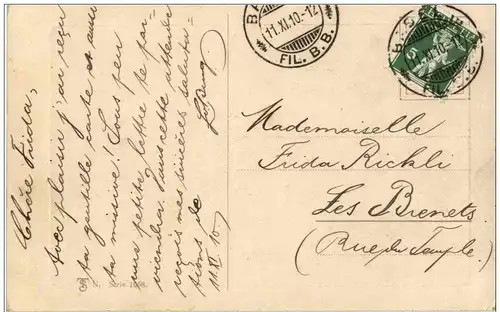 Chère Frida,
Avec plaisir j'ai reçu
ta gentille carte et aussi
ta missive! Sous peu
une petite lettre te par-
viendra. Dans cette attente
reçois mes sincères saluta-
tions de
11.XI.10.
BA
11.XI.10.-12
FIL. B.B.
11.XI.10.-12
FIL. B.B.
Mademoiselle
Frida Rickli
Les Brenets
(Rue du Temple.)
N. Série